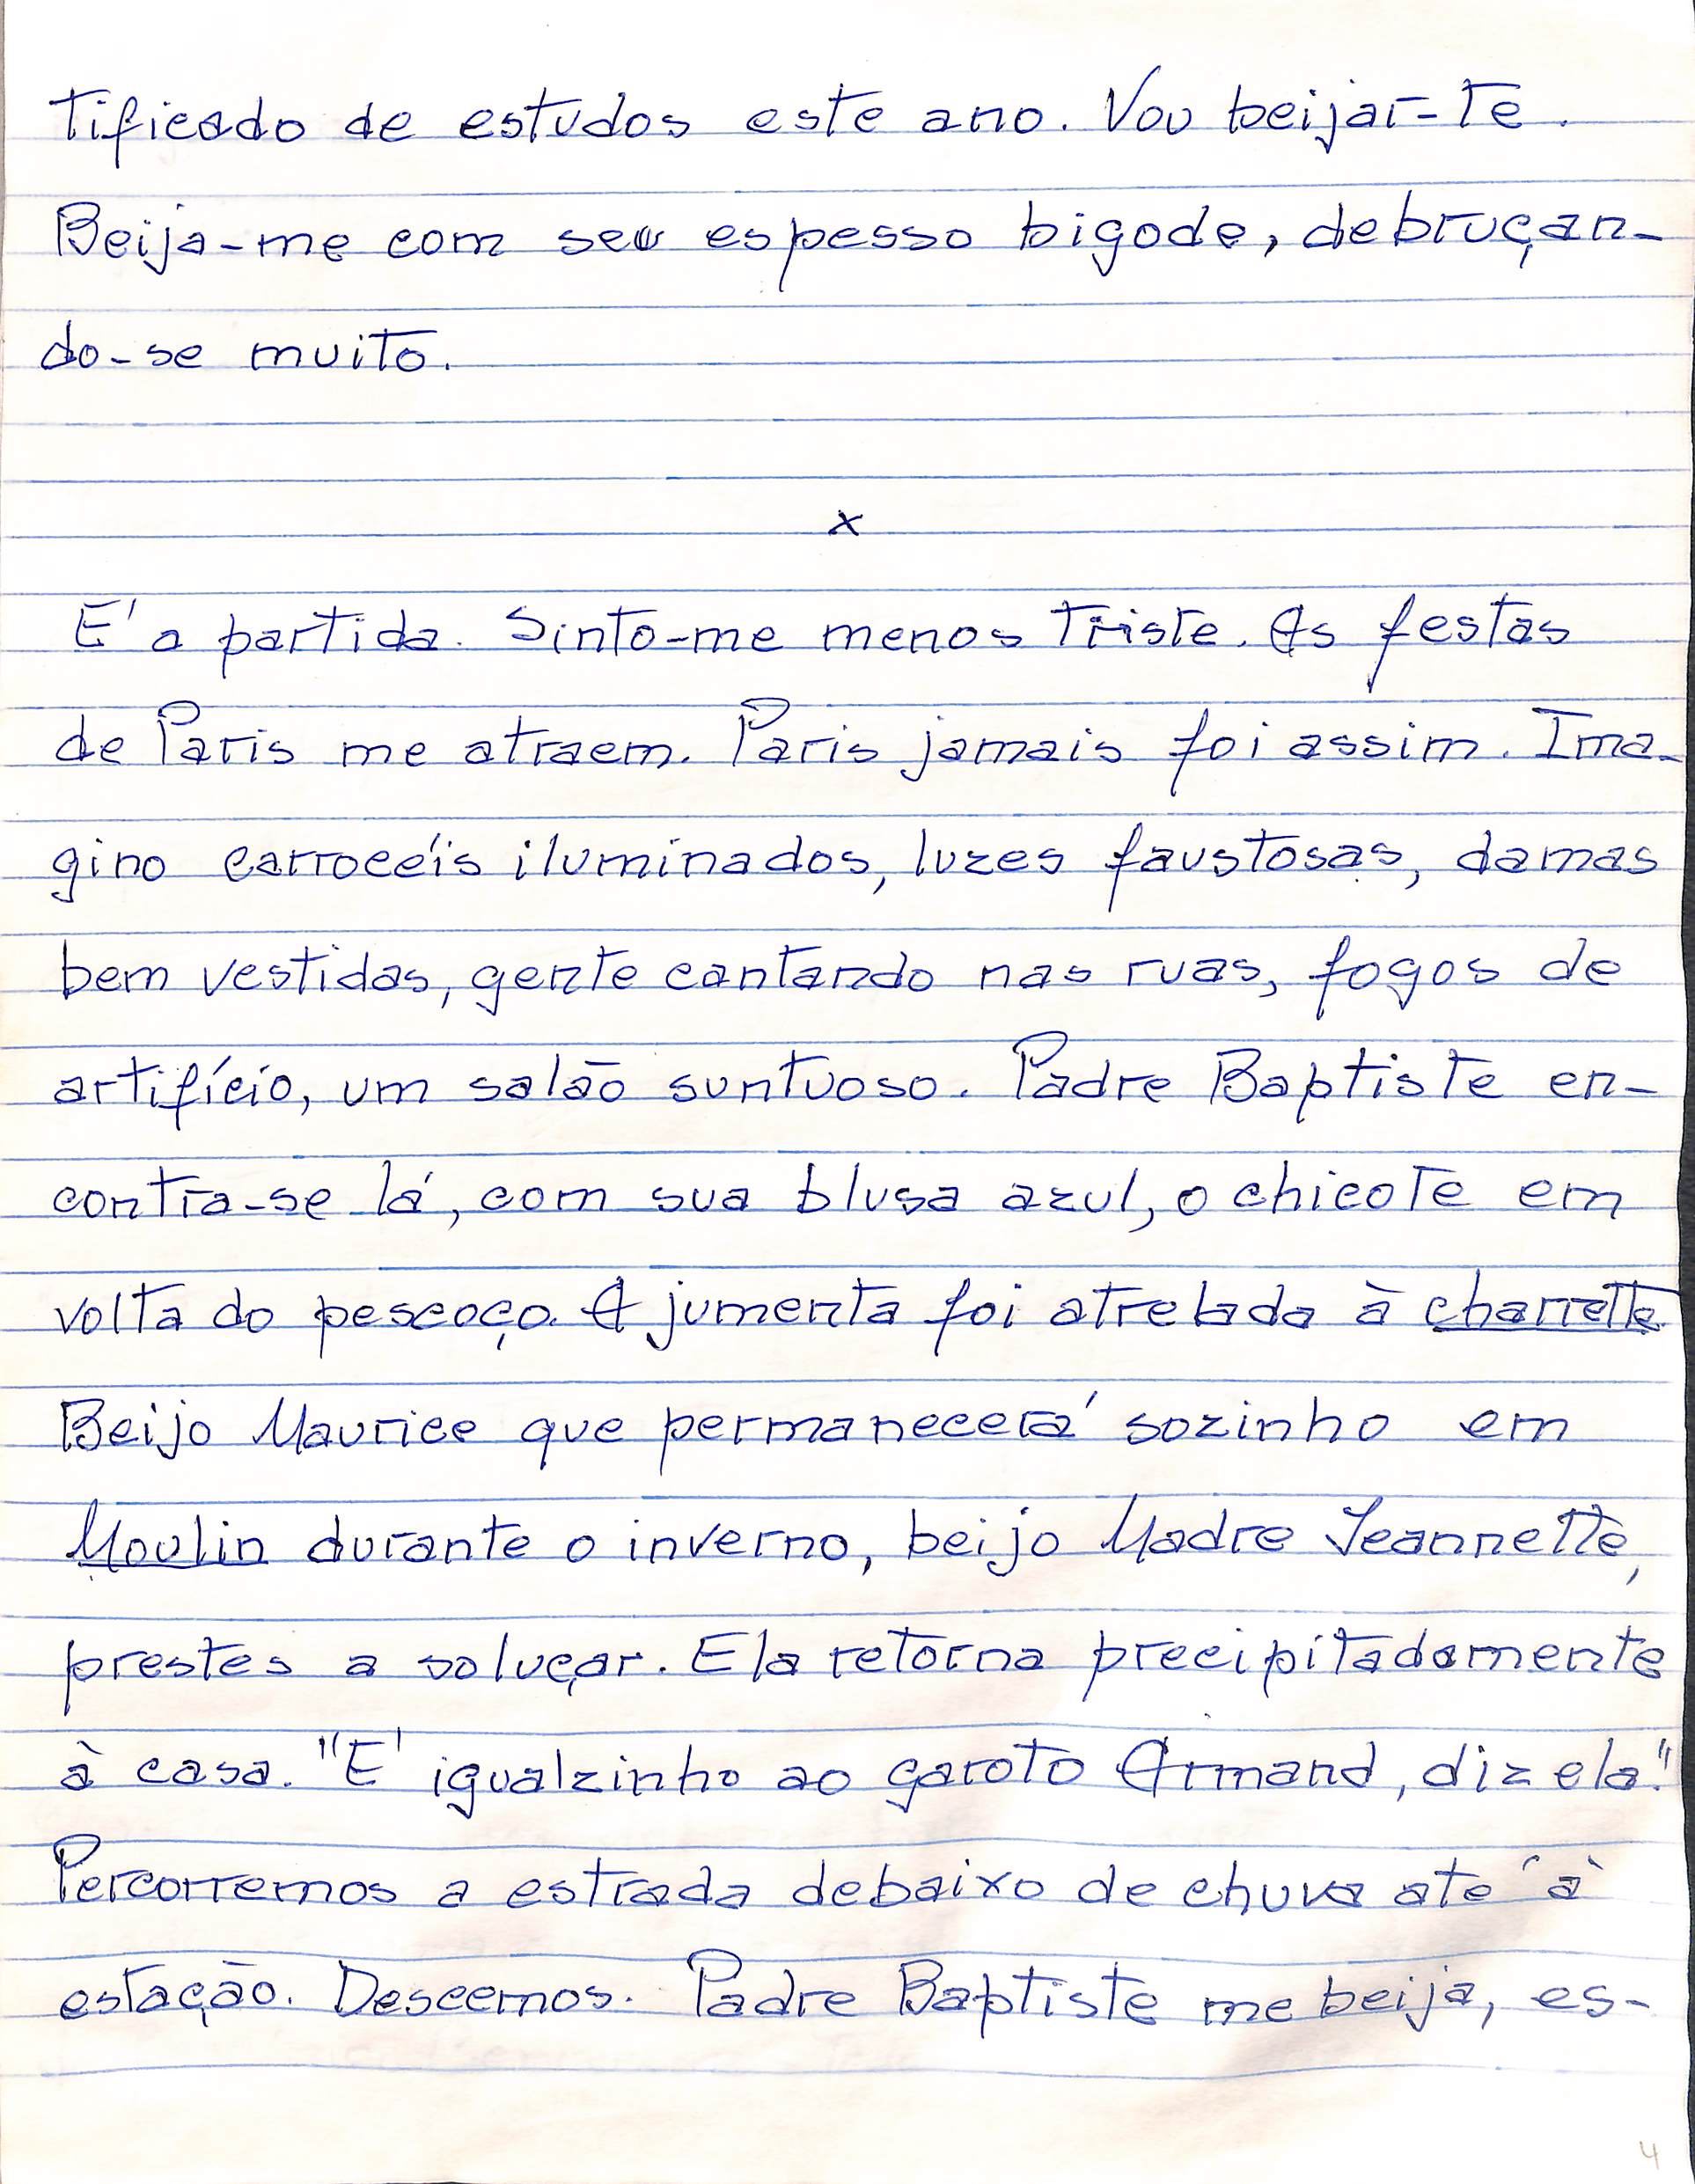 tificado de estudos este ano. Vou beijar-te.
Beija-me com seu espesso bigode, debruçan-
do-se muito.
x
É a partida. Sinto-me menos triste. As festas
de Paris me atraem. Paris jamais foi assim. Ima-
gino carrocéis iluminados, luzes faustosas, damas
bem vestidas, gente cantando nas ruas, fogos de
artifício, um salão suntuoso. Padre Baptiste en-
contra-se lá, com sua blusa azul, o chicote em
volta do pescoço. A jumenta foi atrelada à charrette.
Beijo Maurice que permanecerá sozinho em
Moulin durante o inverno, beijo Madre Jeannette,
prestes a soluçar. Ela retorna precipitadamente
à casa. "É igualzinho ao garoto Armand, diz ela."
Percorremos a estrada debaixo de chuva até à
estação. Descemos. Padre Baptiste me beija, es-
4